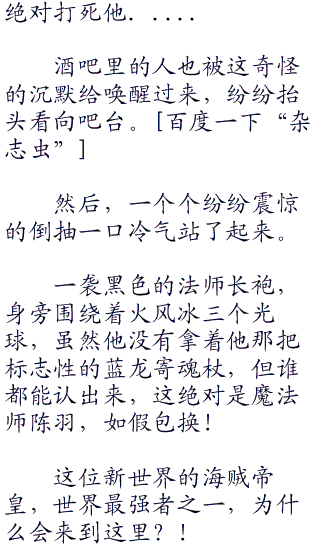 绝对打死他．．．．．
酒吧里的人也被这奇怪
的沉默给唤醒过来，纷纷抬
头看向吧台。[百度一下“杂
志虫”]
然后，一个个纷纷震惊
的倒抽一口冷气站了起来。
一袭黑色的法师长袍，
身旁围绕着火风冰三个光
球，虽然他没有拿着他那把
标志性的蓝龙寄魂杖，但谁
都能认出来，这绝对是魔法
师陈羽，如假包换！
这位新世界的海贼帝
皇，世界最强者之一，为什
么会来到这里？！